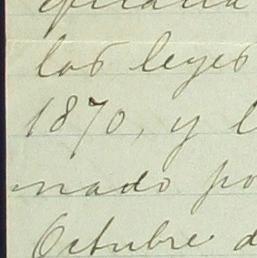 las leyes
1870, y l
nado po
Octubre d